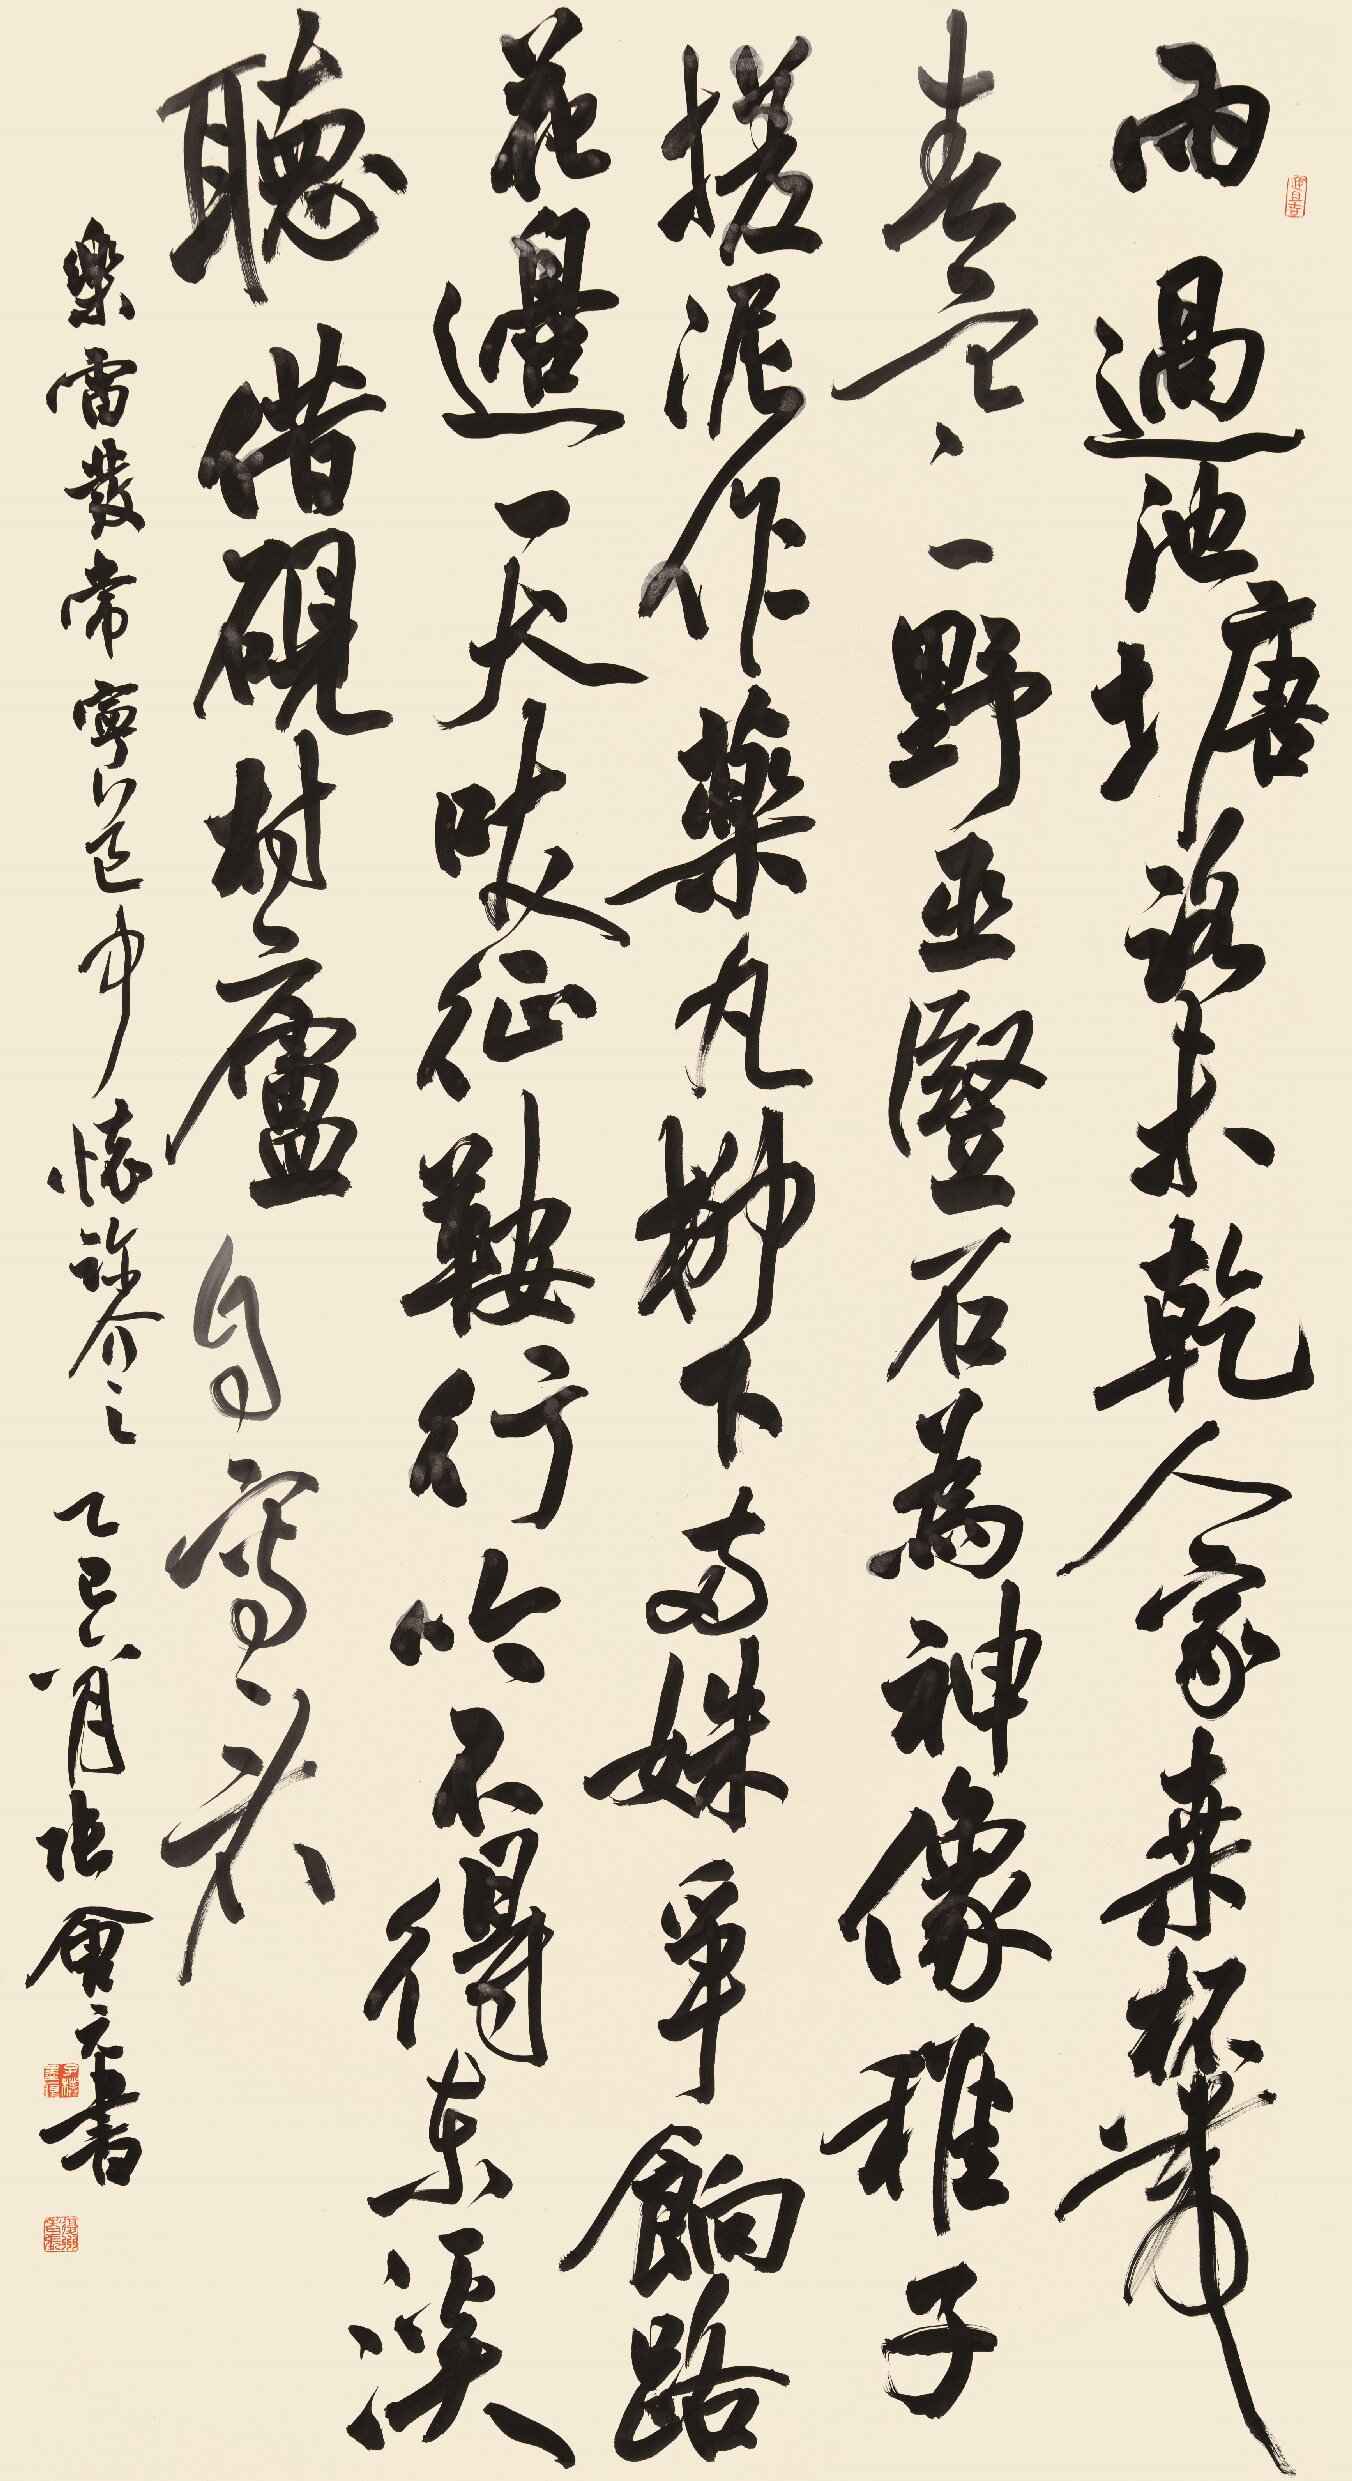 雨過池塘路未乾人家桑柘帶
春寒野巫豎石為神像稚子
搓泥作藥丸柳下兩姝爭餉路
花邊一犬吠征鞍行吟不得東溪
聽借硯村廬自寫看
樂雷發常寧道中懷許介之乙巳八月張會元書